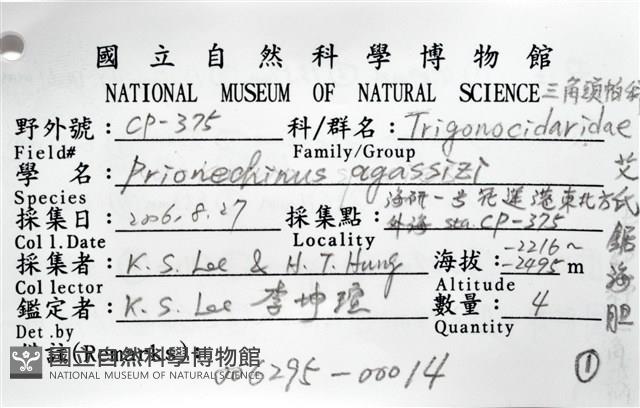 國立自然科學博物館
NATIONAL MUSEUM OF NATURAL SCIENCE 三角頭帕科
野外號：CP-375 科/群名：Trigonocidaridae
Field# Family/Group
學名：Prionechinus agassizi
Species 海研一号花蓮港東北方
採集日：2006.8.27 採集點：外海 sta. CP-375
Coll.Date Locality
採集者：K. S. Lee & H. T. Hung 海拔：-2216~-2495 m
Collector Altitude
鑑定者：K. S. Lee 李坤瑄 數量：4
Det.by Quantity
艾氏鋸海胆
(Remarks)：
國立自然科學博物館
NATIONAL MUSEUM OF NATURAL SCIENCE
006295-00014
①